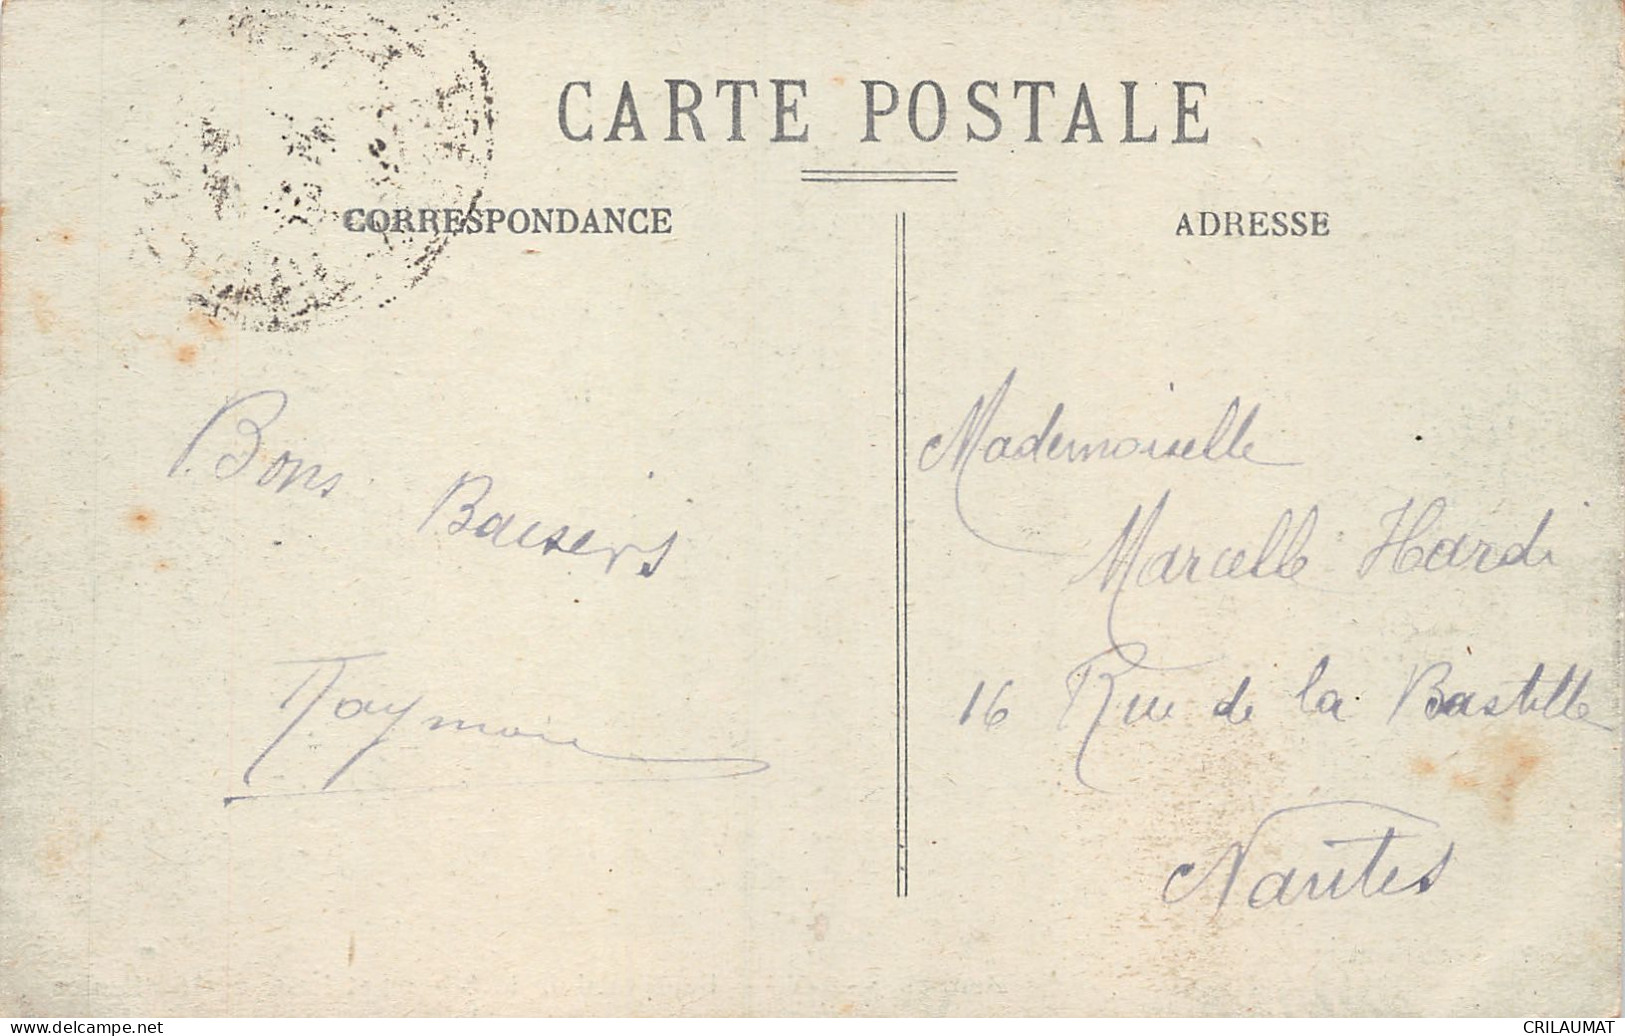 CARTE POSTALE
CORRESPONDANCE
ADRESSE
Bons Baisers
Mademoiselle
Marcelle Hardi
16 Rue de la Bastille
Nantes
delcampe.net
CRILAUMAT